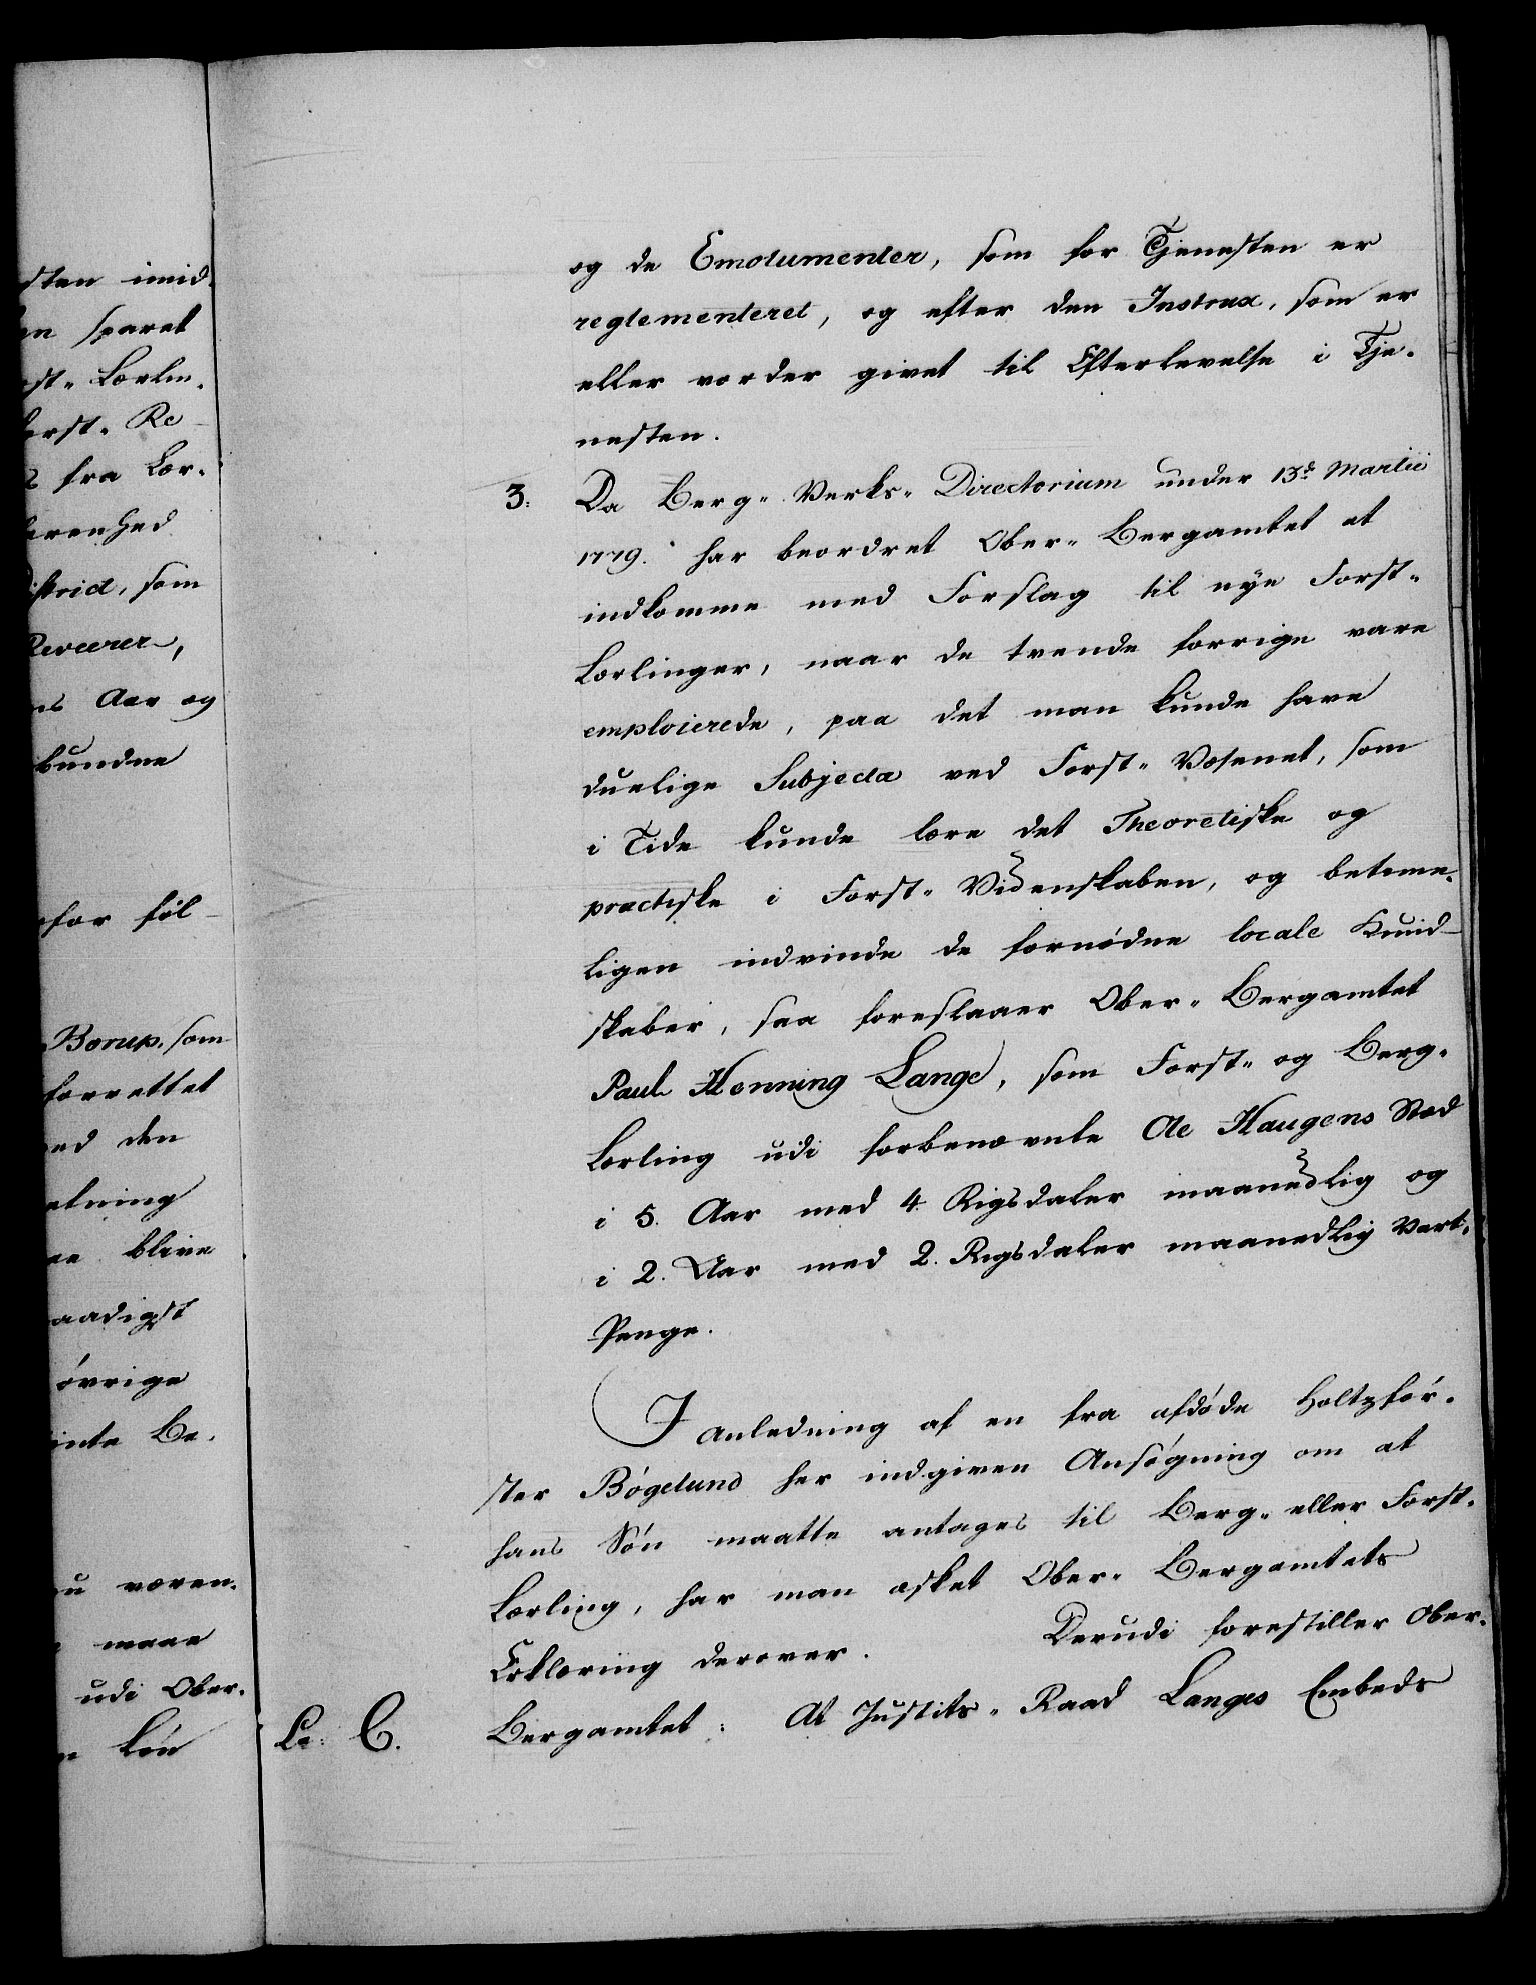 sten imid¬
en sparet
st- Lærlin¬
forst- Re-
s fra Lær-
arenhed
istrict, som
Reverer,
ns Aar og
bundne
for føl-
Borup, som
forrettet
ed den
elning
ee blive
aadigst
øvrige
inte Be¬
u væren¬
maae
udi Ober-
n Løn
og de Emolumenter, som for Tjenesten er
reglementeret, og efter den Instrux, som er
eller vorder givet til Efterlevelse i Tje-
nesten.
3: Da Berg- Verks- Directorium under 13de Martii
1779. har beordret Ober- Bergamtet at
indkomme med Forslag til nye Forst-
Lærlinger, naar de trende forrige vare
emploierede, paa det man kunde have
duelige Subjecta ved Forst- Væsenet, som
i Tide kunde lære det Theoretiske og
practiske i Forst- Videnskaben, og betime-
ligen indvinde de fornødne locale Kund-
skaber, saa foreslaaer Ober- Bergamtet
Paul Henning Lange, som Forst- og Berg-
Lærling udi forbenævnte Ole Haugens Stæd
i 5. Aar med 4 Rigsdaler maanedlig og
i 2. Aar med 2. Rigsdaler maanedlig Vart-
Penge.
I Anledning af en fra afdøde Holtzfør-
ster Bøgelund her indgiven Ansøgning om at
hans Søn maatte antages til Berg- eller Forst-
Lærling, har man æsket Ober- Bergamtets
Erklæring derover. Derudi forestiller Ober-
La: C. Bergamtet: At Justits- Raad Langes Embeds